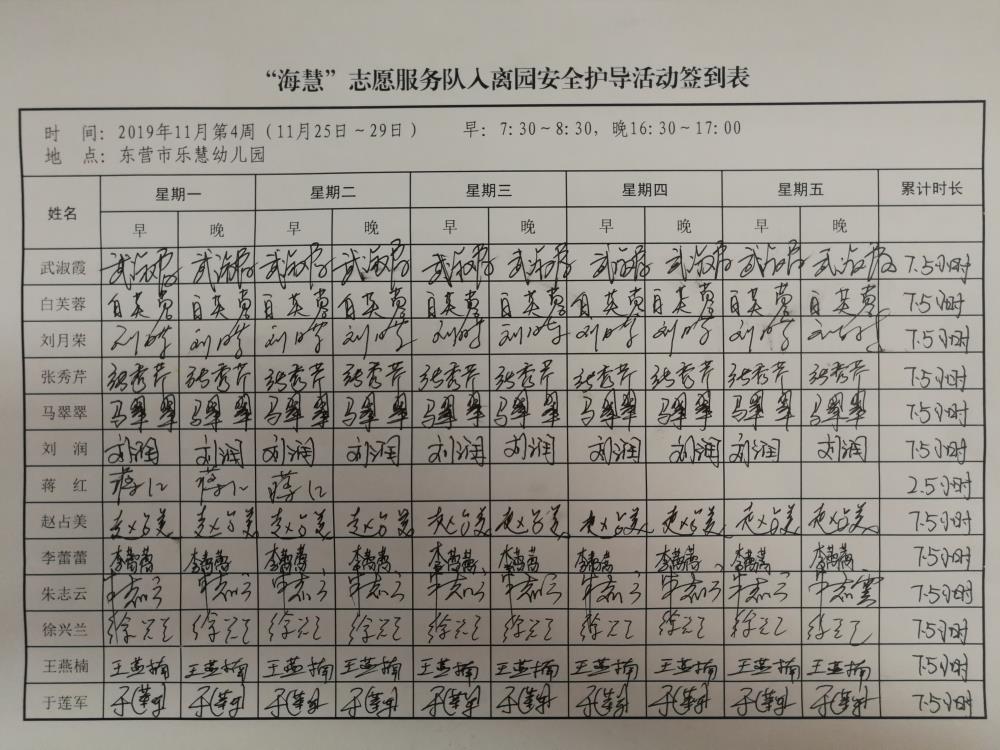 “海慧”志愿服务队入离园安全护导活动签到表
时 间：2019年11月第4周（11月25日～29日） 早：7:30～8:30，晚16:30～17:00
地 点：东营市乐慧幼儿园
姓名 星期一 星期二 星期三 星期四 星期五 累计时长
早 晚 早 晚 早 晚 早 晚 早 晚
武淑霞 武淑霞 武淑霞 武淑霞 武淑霞 武淑霞 武淑霞 武淑霞 武淑霞 武淑霞 武淑霞 7.5小时
白芙蓉 白芙蓉 白芙蓉 白芙蓉 白芙蓉 白芙蓉 白芙蓉 白芙蓉 白芙蓉 白芙蓉 白芙蓉 7.5小时
刘月荣 刘月荣 刘月荣 刘月荣 刘月荣 刘月荣 刘月荣 刘月荣 刘月荣 刘月荣 刘月荣 7.5小时
张秀芹 张秀芹 张秀芹 张秀芹 张秀芹 张秀芹 张秀芹 张秀芹 张秀芹 张秀芹 张秀芹 7.5小时
马翠翠 马翠翠 马翠翠 马翠翠 马翠翠 马翠翠 马翠翠 马翠翠 马翠翠 马翠翠 马翠翠 7.5小时
刘 润 刘润 刘润 刘润 刘润 刘润 刘润 刘润 刘润 刘润 刘润 7.5小时
蒋 红 蒋红 蒋红 蒋红 2.5小时
赵占美 赵占美 赵占美 赵占美 赵占美 赵占美 赵占美 赵占美 赵占美 赵占美 赵占美 7.5小时
李蕾蕾 李蕾蕾 李蕾蕾 李蕾蕾 李蕾蕾 李蕾蕾 李蕾蕾 李蕾蕾 李蕾蕾 李蕾蕾 李蕾蕾 7.5小时
朱志云 朱志云 朱志云 朱志云 朱志云 朱志云 朱志云 朱志云 朱志云 朱志云 朱志雲 7.5小时
徐兴兰 徐兴兰 徐兴兰 徐兴兰 徐兴兰 徐兴兰 徐兴兰 徐兴兰 徐兴兰 徐兴兰 徐兴兰 7.5小时
王燕楠 王燕楠 王燕楠 王燕楠 王燕楠 王燕楠 王燕楠 王燕楠 王燕楠 王燕楠 王燕楠 7.5小时
于莲军 于莲军 于莲军 于莲军 于莲军 于莲军 于莲军 于莲军 于莲军 于莲军 于莲军 7.5小时